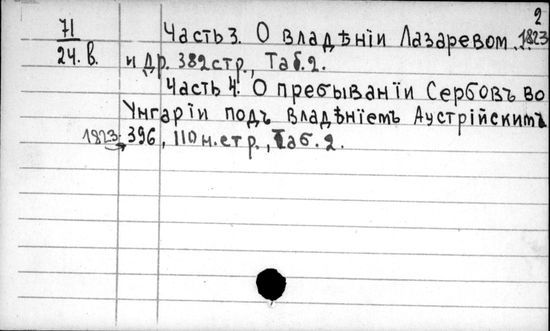 2
71 Часть 3. О владѣнiи Лазаревом, 1823
24. В. и др. 382 стр., Таб. 2.
Часть 4. О пребыванiи Сербовъ во
Унгарiи подъ владѣнiемъ Аустрiйскимъ
1823. 396, 110 н. стр., Таб. 2.